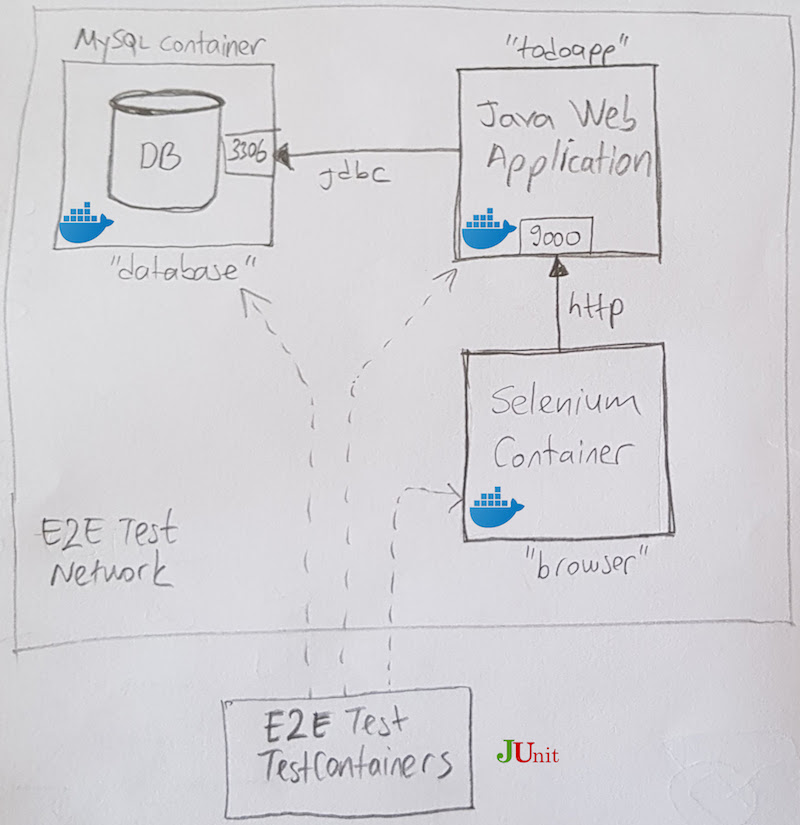 MySQL Container
DB
3306
"database"
jdbc
"todoapp"
Java Web
Application
9000
http
Selenium
Container
"browser"
E2E Test
Network
E2E Test
TestContainers
JUnit